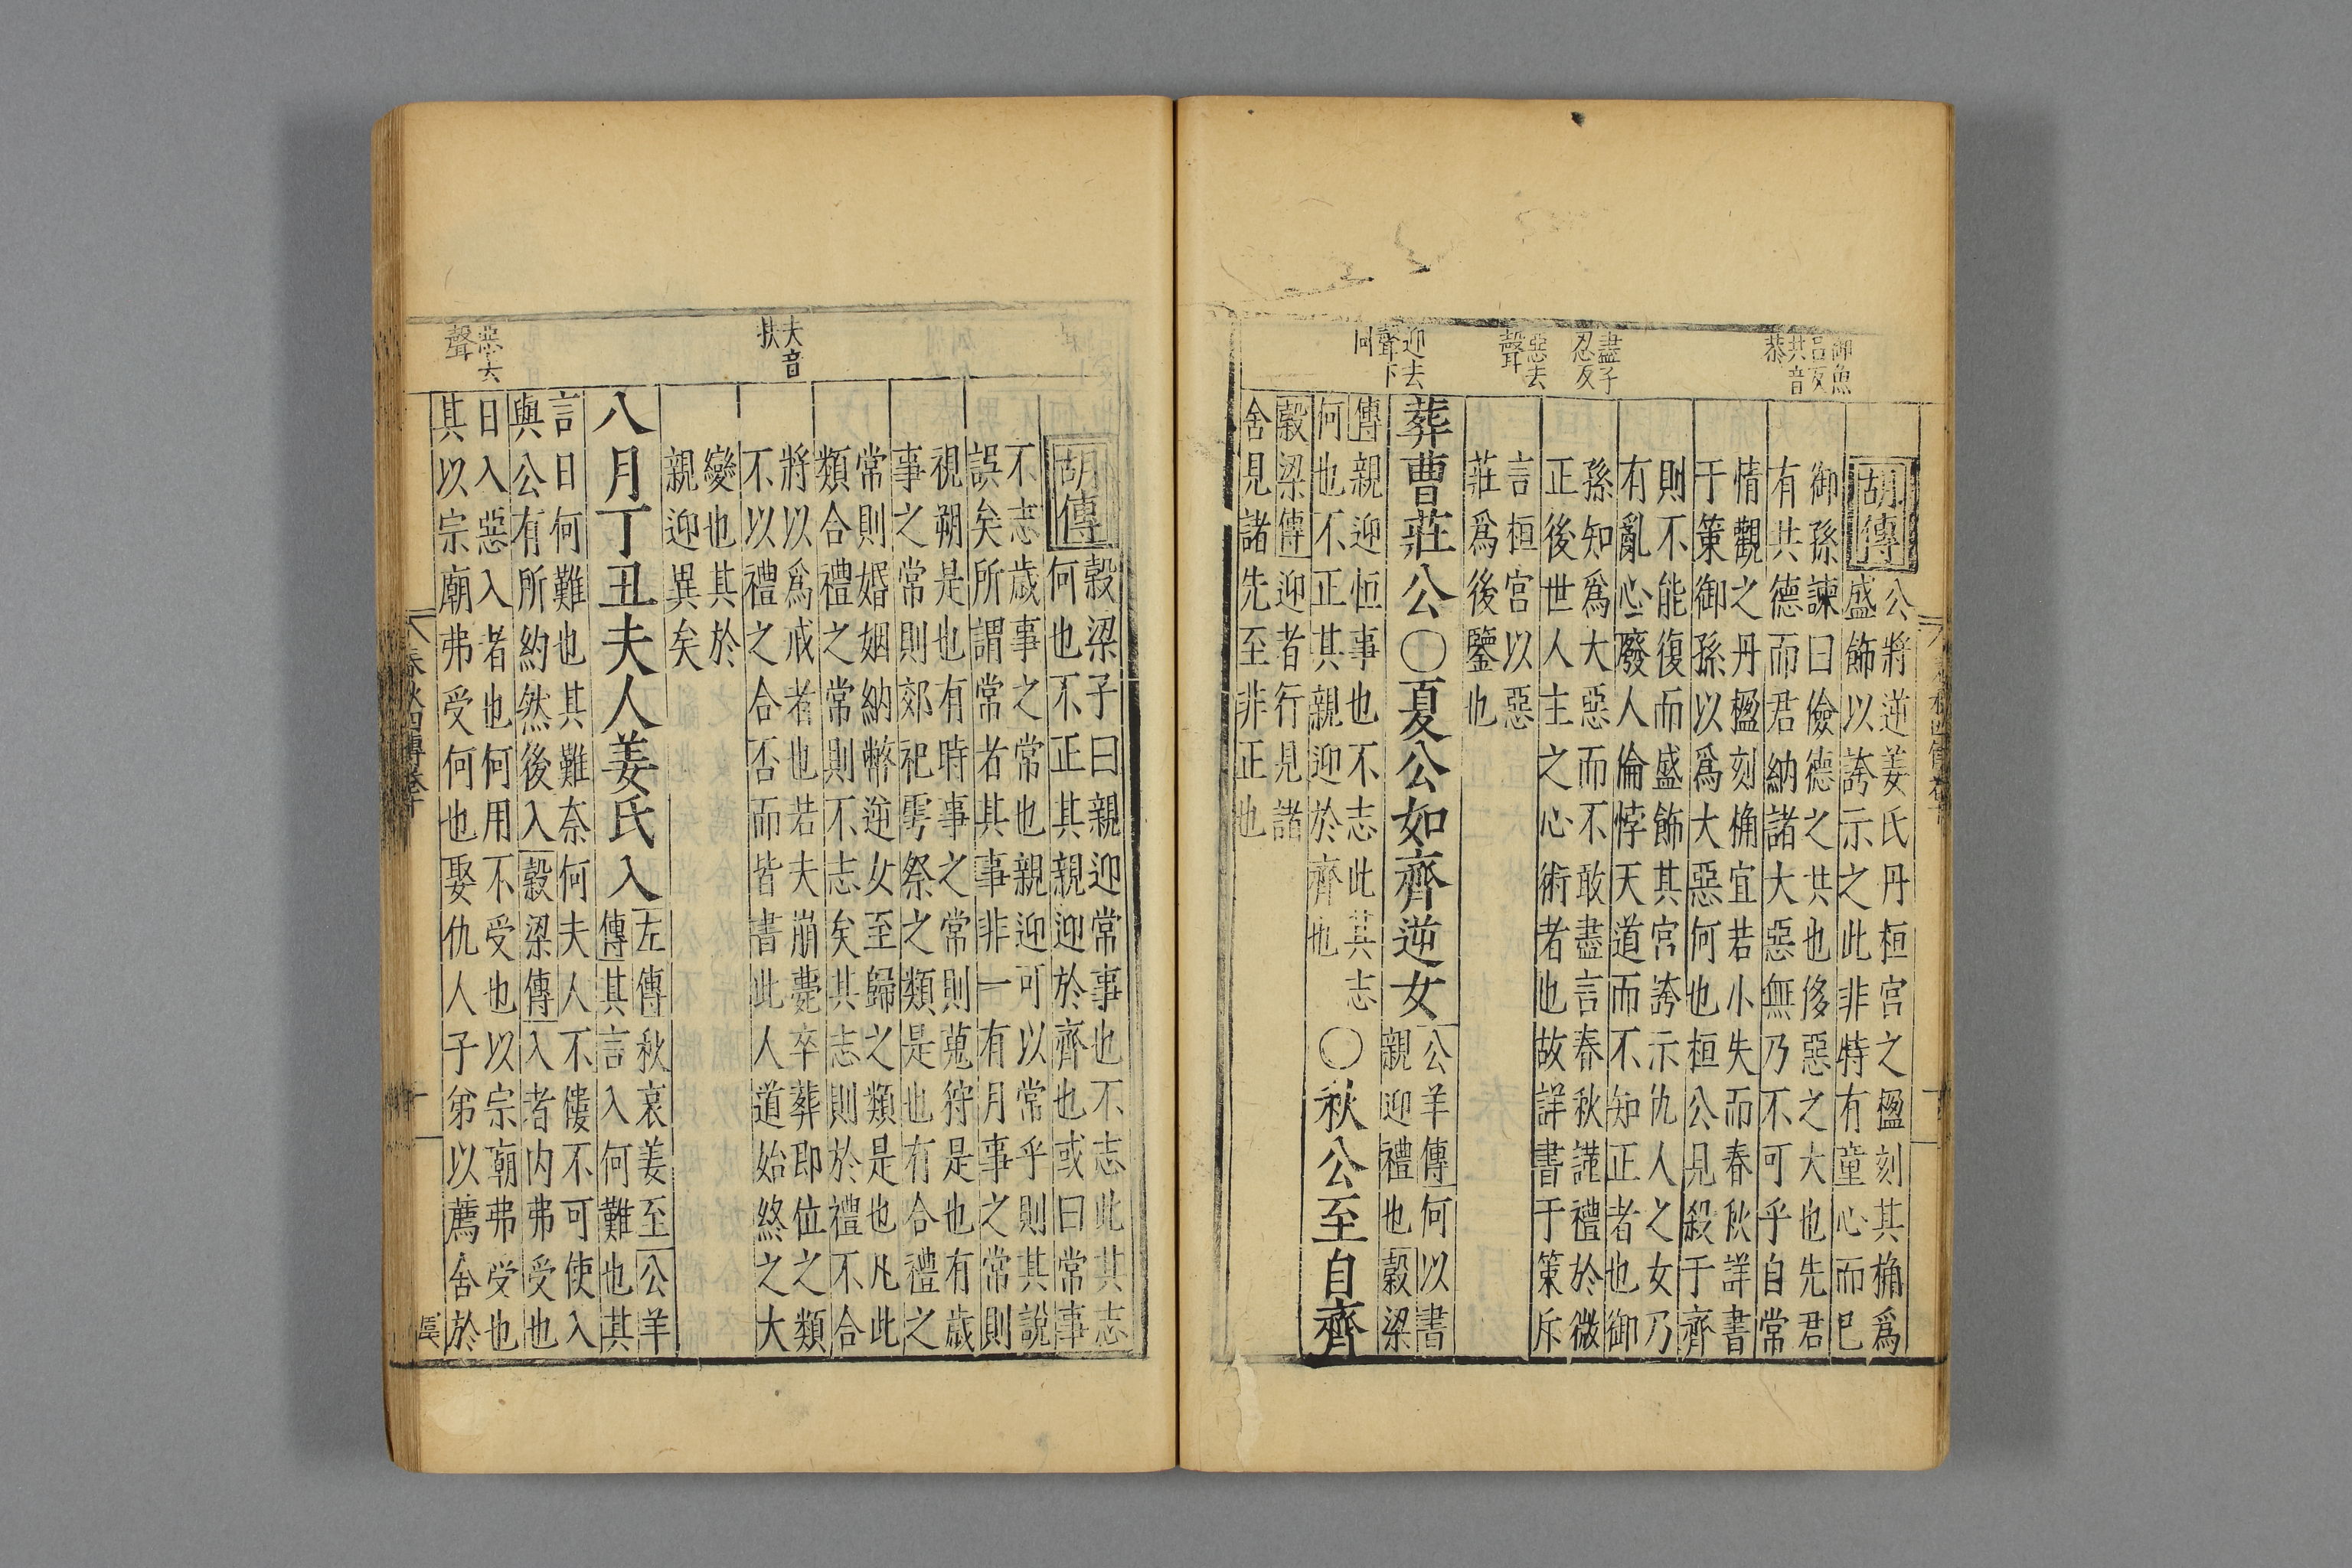 御魚
呂反
共音
恭
盡子
忍反
惡去
聲
迎去
聲下
同
胡傳
公將逆姜氏丹桓宮之楹刻其桷爲
盛飾以誇示之此非特有童心而巳
御孫諫曰儉德之共也侈惡之大也先君
有共德而君納諸大惡無乃不可乎自常
情觀之丹楹刻桷宜若小失而春秋詳書
于策御孫以爲大惡何也桓公見殺于齊
則不能復而盛飾其宮誇示仇人之女乃
有亂心廢人倫悖天道而不知正者也御
孫知爲大惡而不敢盡言春秋謹禮於微
正後世人主之心術者也故詳書于策斥
言桓宮以惡
莊爲後鑒也
葬曹莊公〇夏公如齊逆女
公羊傳何以書
親迎禮也穀梁
傳親迎恒事也不志此其志
何也不正其親迎於齊也
〇秋公至自齊
穀梁傳迎者行見諸
舍見諸先至非正也
夫音
扶
惡去
聲
胡傳
穀梁子曰親迎常事也不志此其志
何也不正其親迎於齊也或曰常事
不志歲事之常也親迎可以常乎則其說
誤矣所謂常者其事非一有月事之常則
視朔是也有時事之常則蒐狩是也有歲
事之常則郊祀雩祭之類是也有合禮之
常則婚姻納幣逆女至歸之類是也凡此
類合禮之常則不志矣其志則於禮不合
將以爲戒者也若夫崩薨卒葬即位之類
不以禮之合否而皆書此人道始終之大
變也其於
親迎異矣
八月丁丑夫人姜氏入
左傳秋哀姜至公羊
傳其言入何難也其
言日何難也其難奈何夫人不僂不可使入
與公有所約然後入穀梁傳入者内弗受也
日入惡入者也何用不受也以宗廟弗受也
其以宗廟弗受何也娶仇人子弟以薦舍於
春秋四傳卷十